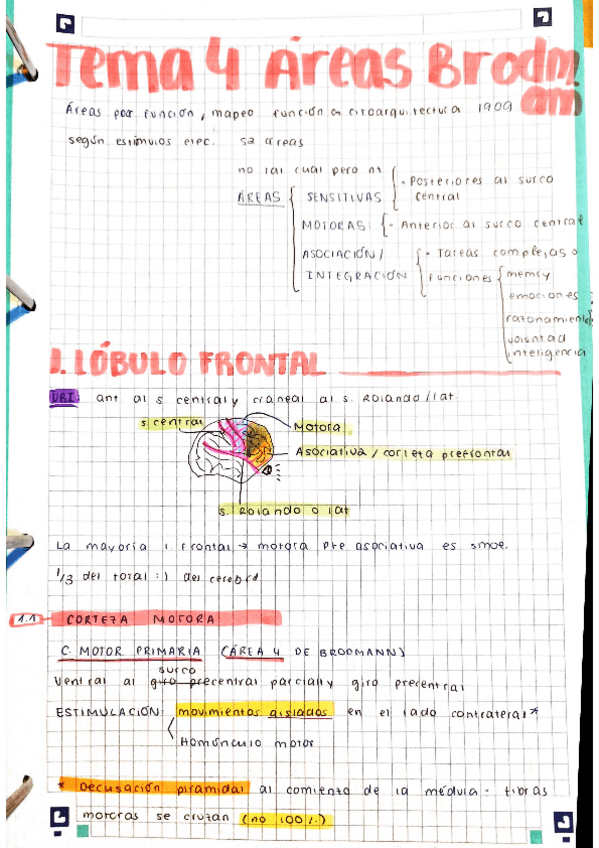 Tema 4 Áreas Brodm
am
Áreas por función, mapeo función a citoarquitectura 1909
según estímulos elec. 52 áreas
no tal cual pero
ÁREAS
SENSITIVAS
- Posteriores al surco
central
MOTORAS: - Anterior al surco central
ASOCIACIÓN/
INTEGRACIÓN
- Tareas complejas o
funciones
emociones
razonamiento
voluntad
inteligencia
1. LÓBULO FRONTAL
UBI: ant al s central y craneal al s. Rolando/lat.
s central
Motora
Asociativa / corteza prefrontal
s. Rolando o lat
La mayoría l. frontal → motora pte asociativa es
1/3 del total :) del cerebro
1.1 CORTEZA MOTORA
C. MOTOR PRIMARIA (ÁREA 4 DE BRODMANN)
surco
Ventral al giro precentral parcially giro precentral
ESTIMULACIÓN: movimientos aislados en el lado contrateral*
Homúnculo motor
* Decusación piramidal al comienzo de la médula - fibras
motoras se cruzan (no 100%)